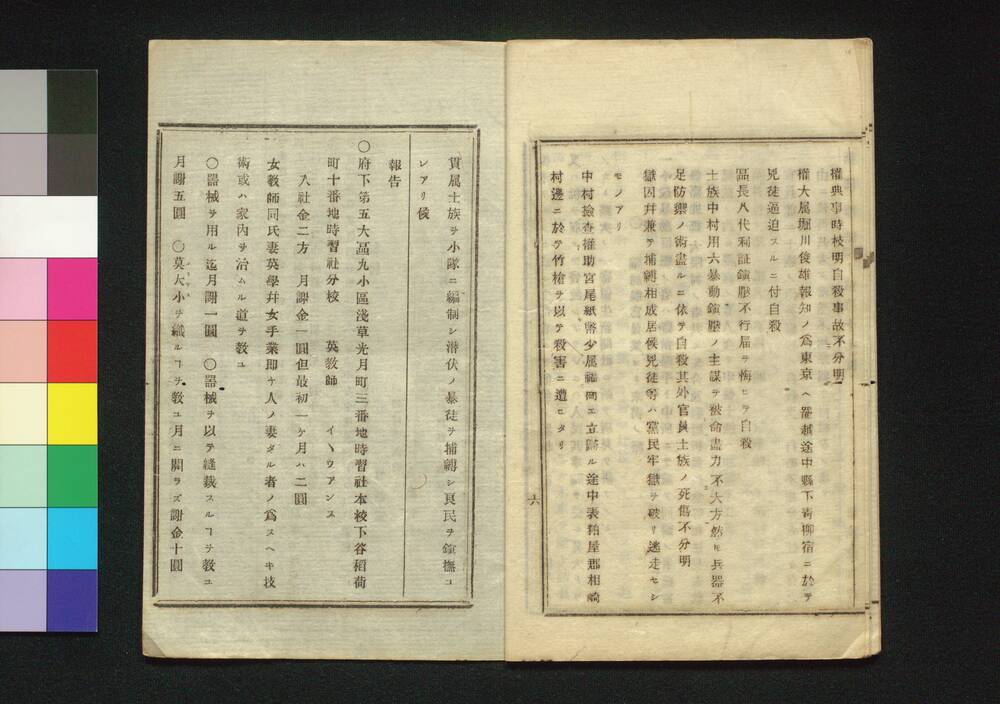 權典事時枝明自殺事故不分明
權大属堀川俊雄報知ノ爲東京ヘ罷越途中縣下青柳宿ニ於テ
兇徒逼迫スルニ付自殺
區長八代利証鎭壓不行届ヲ悔ヒテ自殺
士族中村用六暴動鎭壓ノ主謀ヲ被命盡力不大方然ㇾ𪜈兵器不
足防禦ノ術盡ルニ依テ自殺其外官員士族ノ死傷不分明
獄囚幷兼テ捕縛相成居候兇徒等ハ黨民牢獄ヲ破リ逃走セシ
モノアリ
中村撿査權助宮尾紙幣少属福岡エ立歸ル途中表粕屋郡相﨑
村邊ニ於テ竹槍ヲ以テ殺害ニ遭ヒタリ
六
貫属士族ヲ小隊ニ編制シ潜伏ノ暴徒ヲ捕縛シ良民ヲ鎭撫ユ
レアリ候
報告
〇府下第五大區九小區淺草光月町三番地時習社本校下谷稻荷
町十番地時習社分校 英教師 イヽウアンス
入社金二方 月謝金一圓但最初一ケ月ハ二圓
女教師同氏妻英學幷女手業即ケ人ノ妻タル者ノ爲スヘキ技
術或ハ家内ヲ治ムル道ヲ教ユ
〇器械ヲ用ル迄月謝一圓 〇器械ヲ以テ縫裁スルヿヲ教ユ
月謝五圓 〇莫大小ヲ織ルヿヲ教ユ月ニ關ラズ謝金十圓